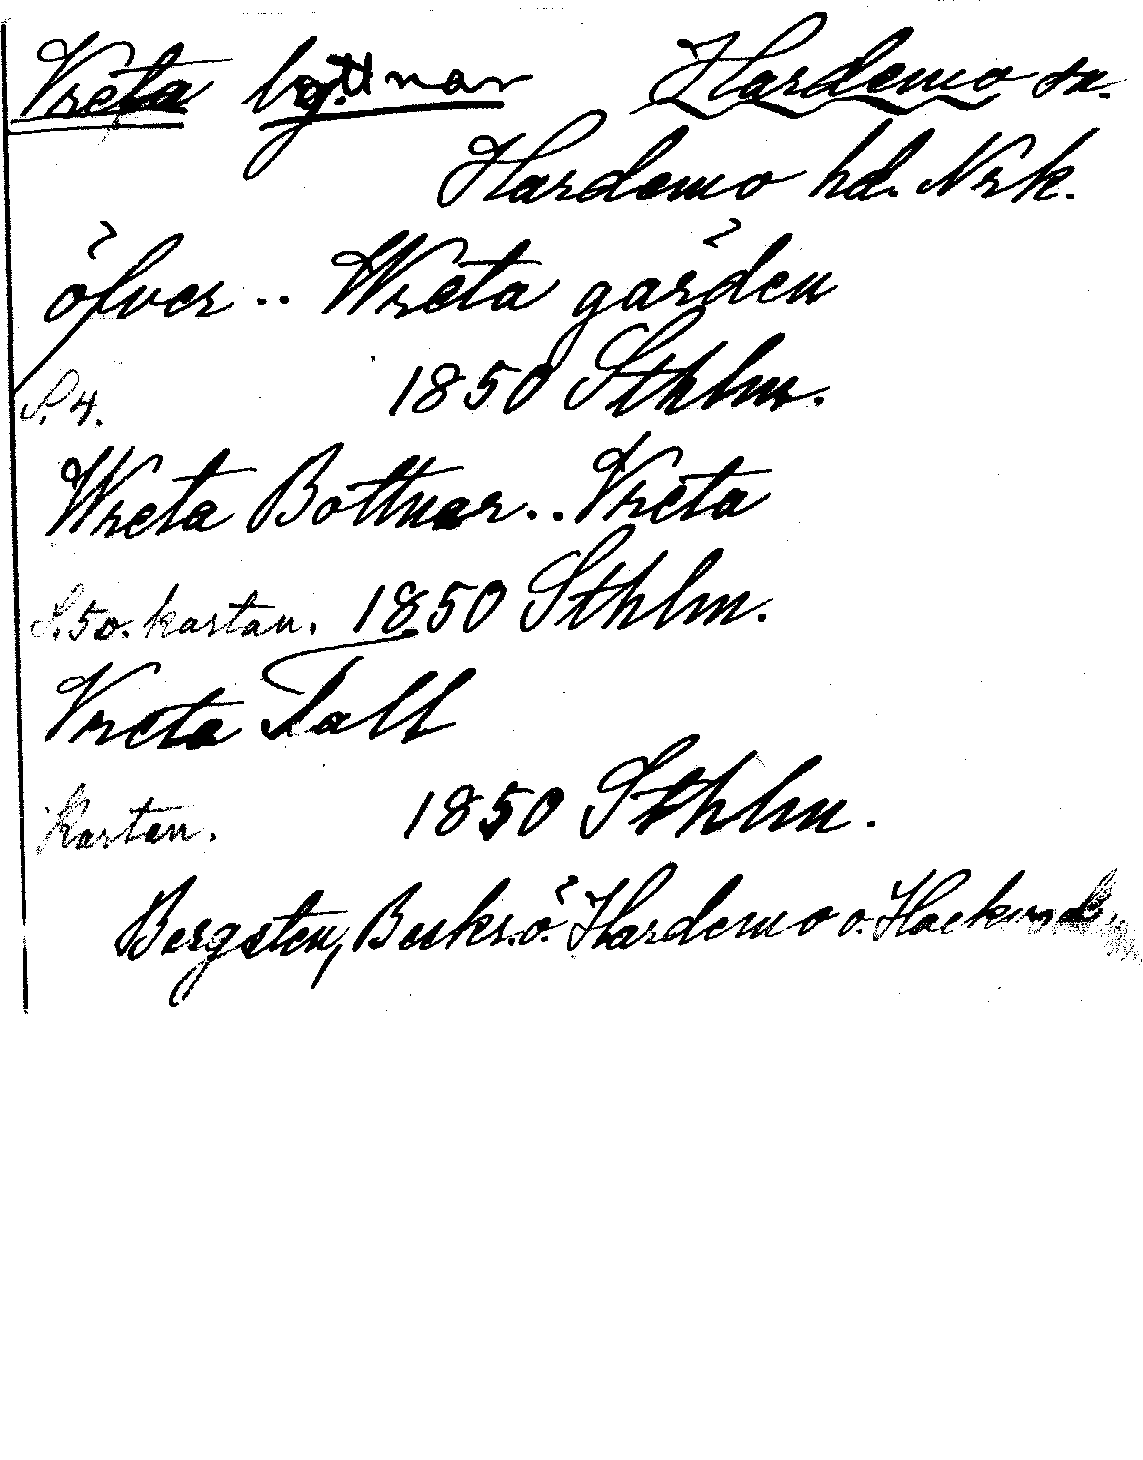 Vreta bottnar Hardemo sn.
Hardemo hd. Nrk.
öfver .. Wreta gärden
S. 4. 1850 Sthlm.
Wreta Bottnar .. Vreta
S. 50. kartan. 1850 Sthlm.
Vreta Tall
Kartan. 1850 Sthlm.
Bergsten, Beskr. ö. Hardemo o. Hackvad